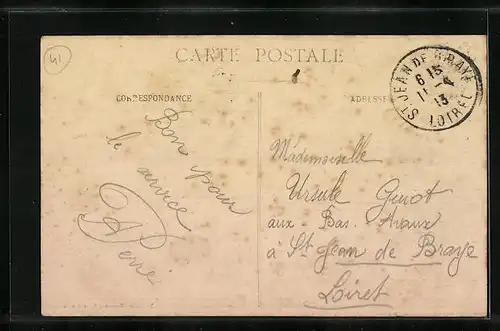 41
CARTE POSTALE
CORRESPONDANCE
ADRESSE
ST JEAN DE BRAYE
6 15
11 - 4
13
LOIRET
Bon pour
le service
Mademoiselle
Ursule Guiot
aux Bas. Avaux
à St Jean de Braye
Loiret